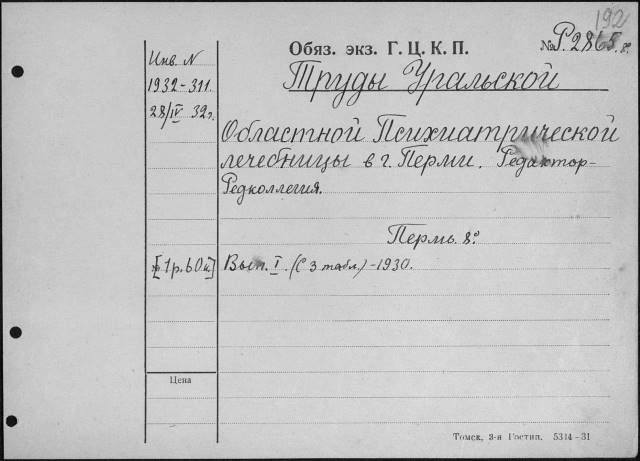 192
Обяз. экз. Г. Ц. К. П. № Р. 2865. 8°
Инв. N
1932-311.
28/IV 32г.
Труды Уральской
Областной Психиатрической
лечебницы в г. Перми. Редактор-
Редколлегия.
Пермь. 8°
[1р.60к] Вып. I. (С 3 табл.) - 1930.
Цена
Томск, 3-я Гостип. 5314-31